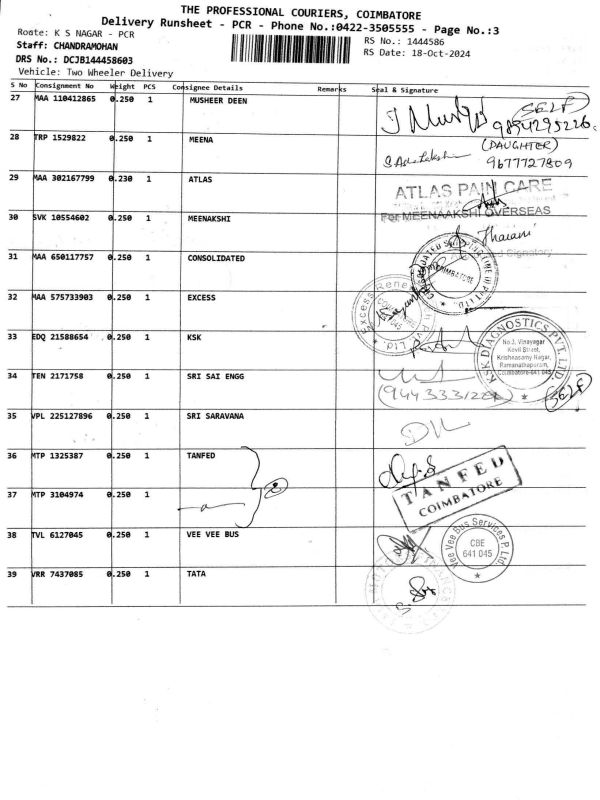 THE PROFESSIONAL COURIERS, COIMBATORE
Delivery Runsheet - PCR - Phone No.:0422-3505555 - Page No.:3
Route: K S NAGAR - PCR
RS No.: 1444586
Staff: CHANDRAMOHAN
RS Date: 18-Oct-2024
DRS No.: DCJB144458603
Vehicle: Two Wheeler Delivery
S No Consignment No Weight PCS Consignee Details Remarks Seal & Signature
27 MAA 110412865 0.250 1 MUSHEER DEEN
SELF
9894295226
28 TRP 1529822 0.250 1 MEENA
(DAUGHTER)
9677727809
29 MAA 302167799 0.230 1 ATLAS
ATLAS PAIN CARE
30 SVK 10554602 0.250 1 MEENAKSHI
For MEENAAKSHI OVERSEAS
Tharani
Signatory
31 MAA 650117757 0.250 1 CONSOLIDATED
COIMBATORE
32 MAA 575733903 0.250 1 EXCESS
Excess Renew
33 EDQ 21588654 0.250 1 KSK
KSK DIAGNOSTICS PVT. LTD.
No.3, Vinayagar
Kovil Street,
Krishnasamy Nagar,
Ramanathapuram,
Coimbatore-641 045
34 TEN 2171758 0.250 1 SRI SAI ENGG
SELF
35 VPL 225127896 0.250 1 SRI SARAVANA
36 MTP 1325387 0.250 1 TANFED
TANFED
COIMBATORE
37 MTP 3104974 0.250 1
2
38 TVL 6127045 0.250 1 VEE VEE BUS
Vee Vee Bus Services P. Ltd.
CBE
641 045
39 VRR 7437085 0.250 1 TATA